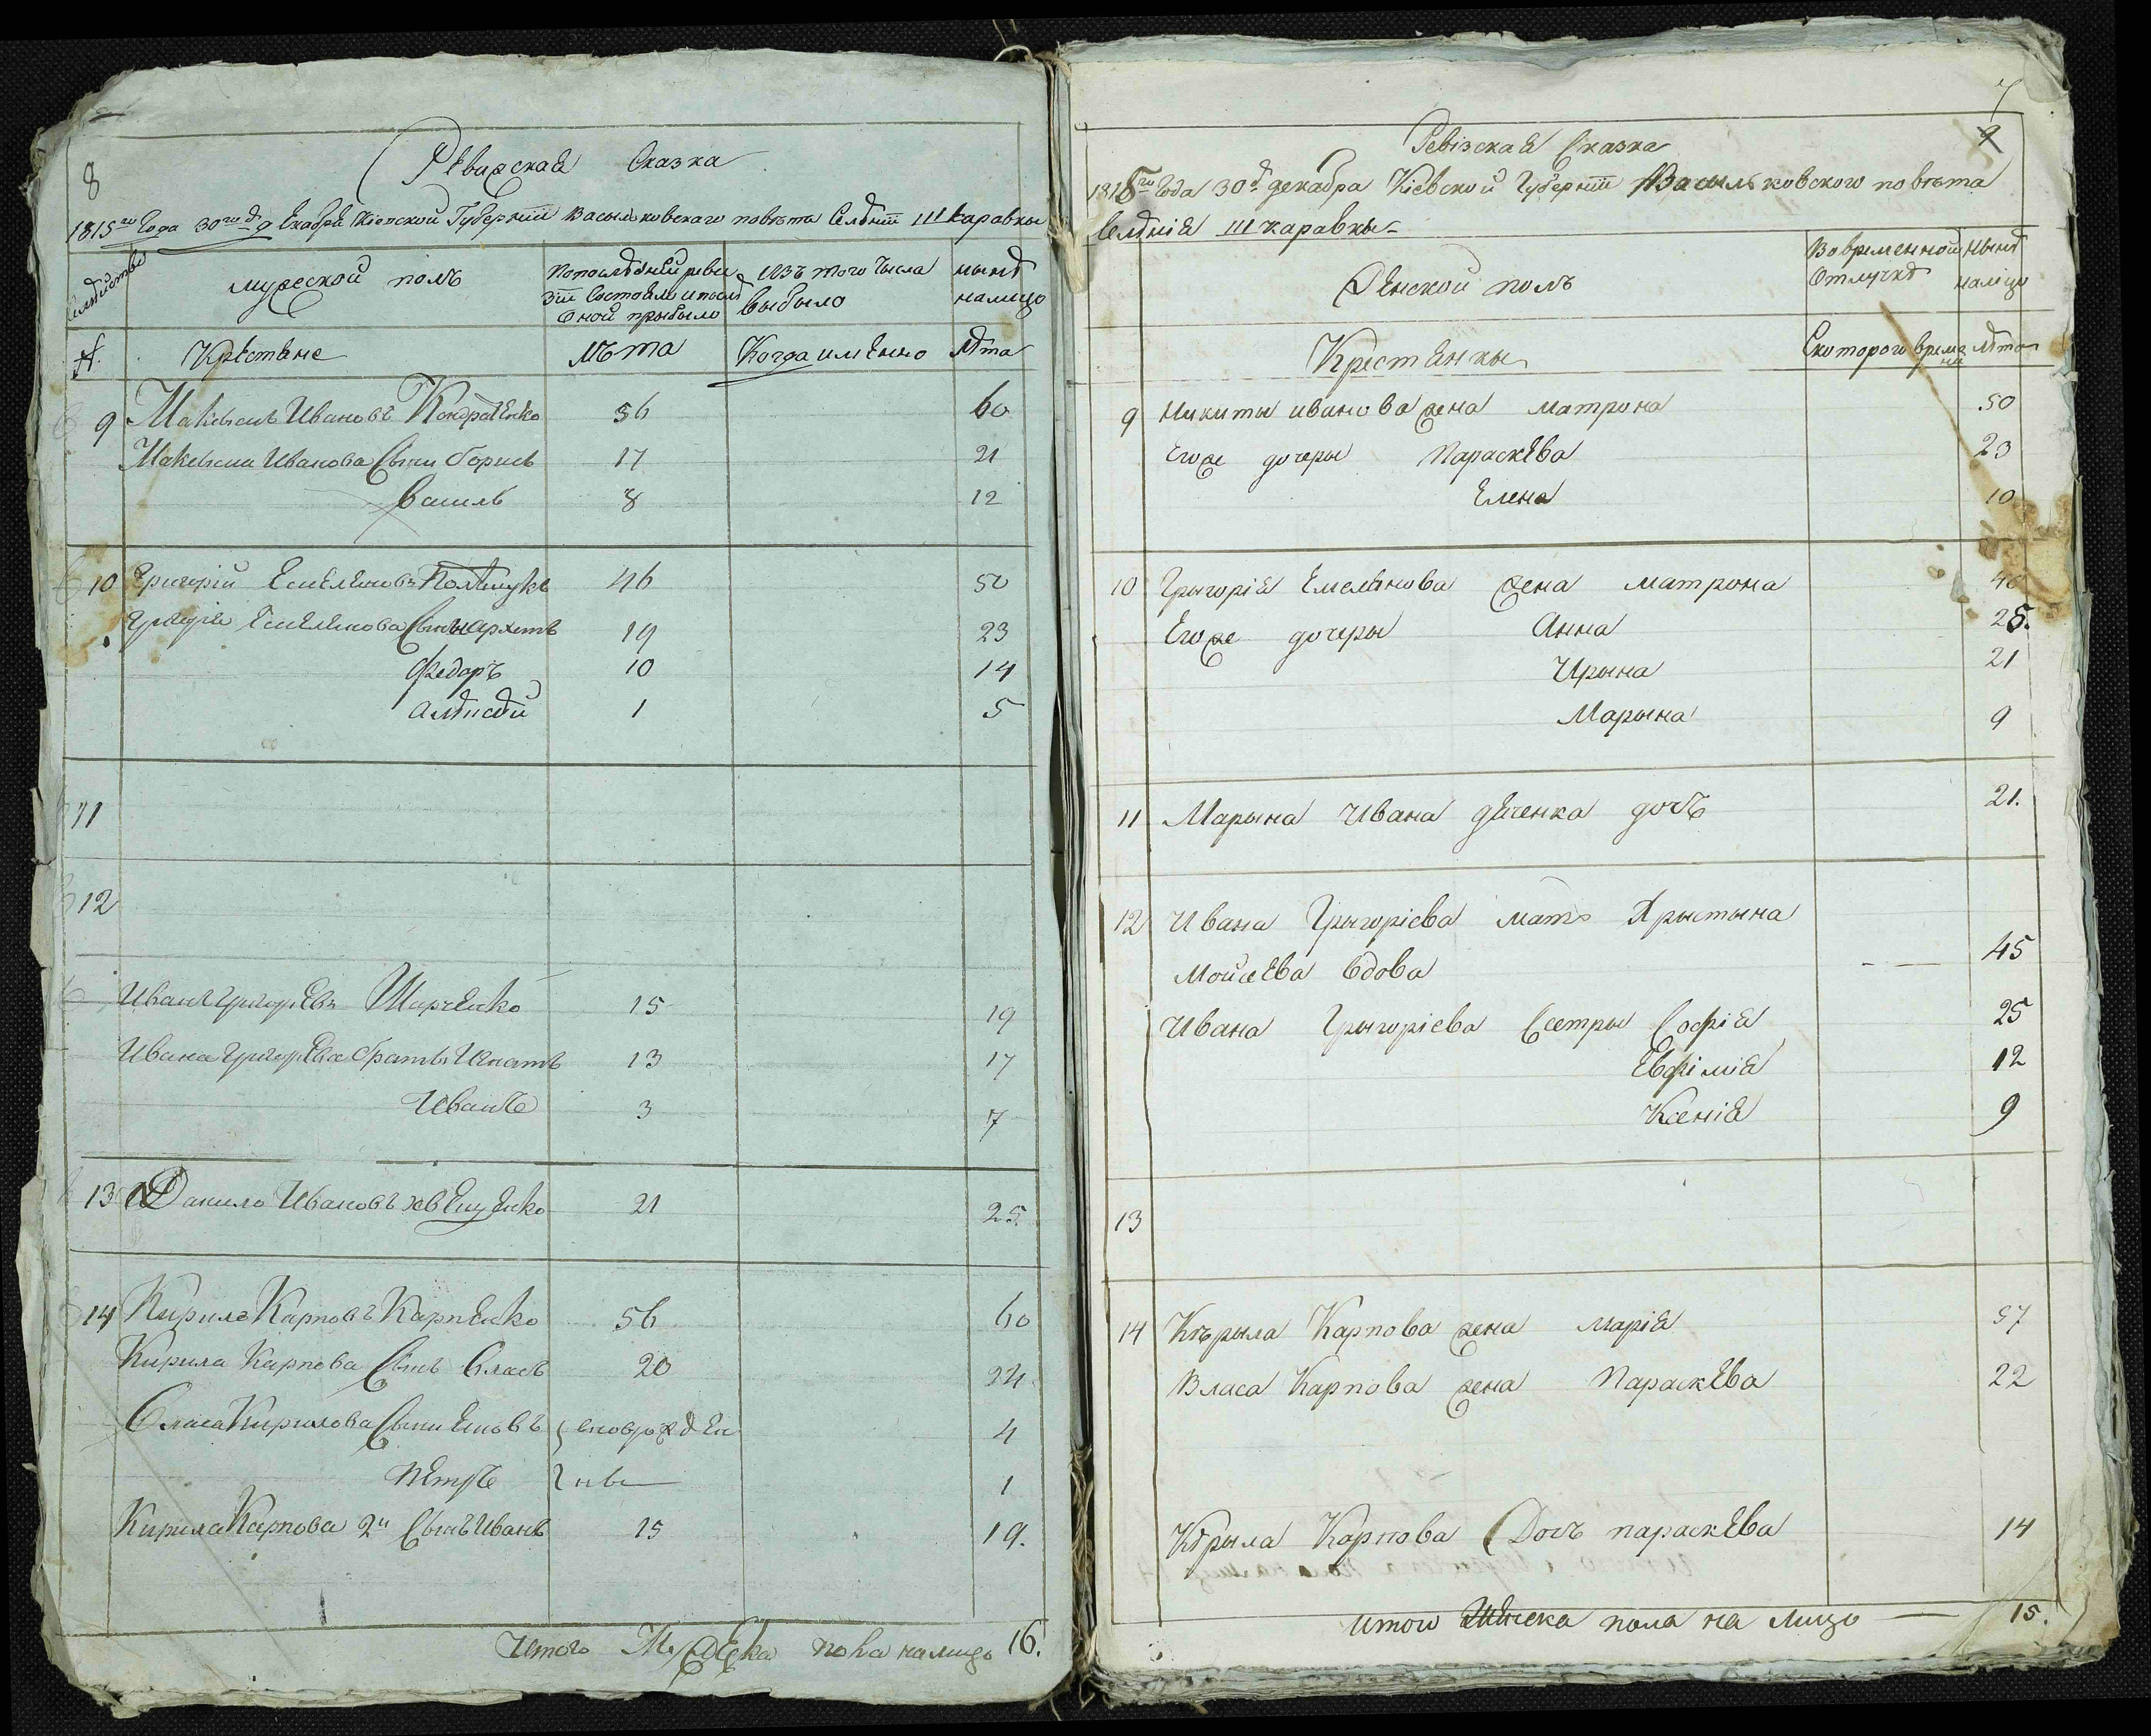 8
Ревизская Сказка
1815го Года 30го д. Декабря Кіевской Губерніи Васильковского повѣта Селенія Шкаравки
Семейства
мужеской полъ
Попоследней реви
зіи Состояло и после
Оной прыбыло
Изъ того Числа
выбыло
ныне
налицо
№.
Крестяне
лѣта
Когда имѣнно
лѣта
9 Максымъ Ивановъ Кондратенко 56 60
Максыма Иванова Сыны Борисъ 17 21
Василь 8 12
10 Григорій Емеляновъ Полищукъ 46 50
Григорія Емелянова Сыны 19 23
Федоръ 10 14
Алексѣй 1 5
11
12
Иванъ Григорьевъ Шарченко 15 19
Ивана Григорьева братья Игнатъ 13 17
Иванъ 3 7
13 Данило Ивановъ 21 25.
14 Кирило Карповъ Карпенко 56 60
Кирила Карпова Сынъ Власъ 20 24
Власа Кирилова Сыны новорожден 4
Петръ ные 1
Кирила Карпова 2й Сынъ Иванъ 15 19.
Итого Мужеска пола налицо 16.
7
9
Ревізская Сказка
1815го Года 30 д. декабра Кіевской Губерніи Васыльковского повѣта
Селенія Шкаравкы
Женской полъ
Во временной
Отлучке
ныне
наліцо
Крестянкы
Скоторого време
ни
лѣта
9 Никиты иванова жена матрона 50
Егоже дочеры Параскева 23
Елена 10
10 Грыгорія Емелянова жена матрона 40
Егоже дочеры Анна 25.
Ирына 21
Марына 9
11 Марына Ивана дяченка дочь 21.
12 Ивана Грыгоріева мать Хрыстына
Мойсеева вдова 45
Ивана Грыгоріева Сестры Софія 25
Евфімія 12
Ксенія 9
13
14 Кырыла Карпова жена марія 57
Власа Карпова жена Параскева 22
Кырыла Карпова Дочъ параскева 14
итого Женска пола на лицо 15.